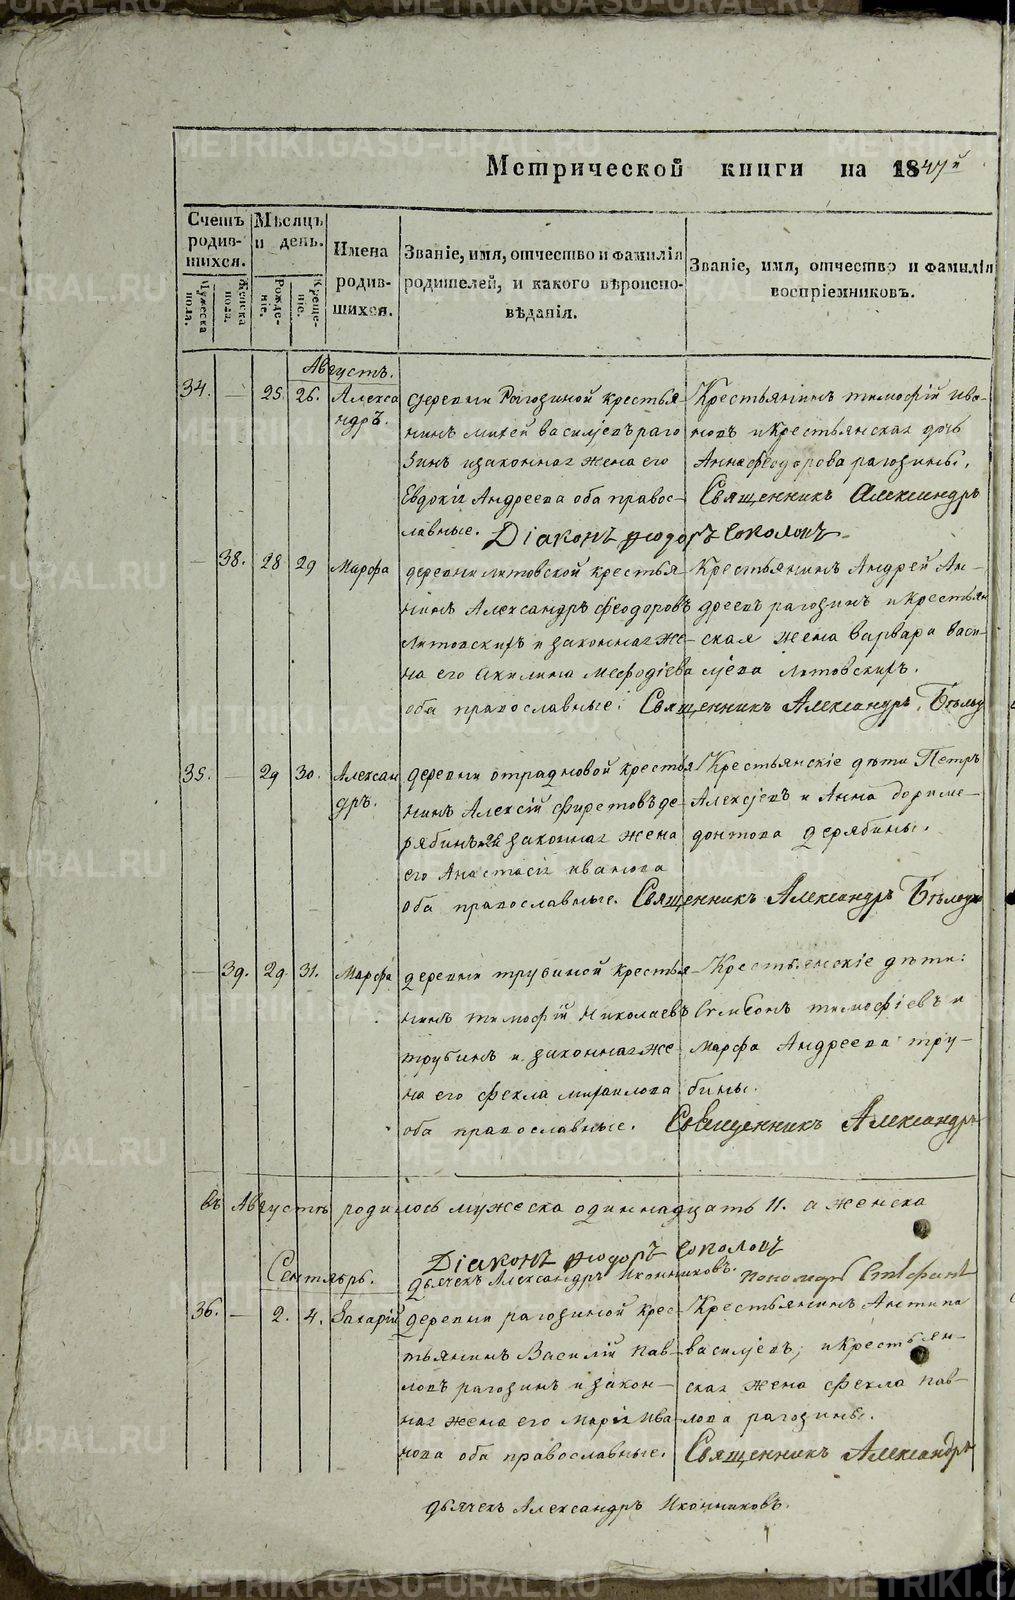 METRIKI.GASO-URAL.RU
Метрической книги на 1847й
Счетъ родив-шихся.
Мужеска пола.
Женска пола.
Мѣсяцъ и день.
Рожде-ніе.
Креще-ніе.
Имена родив-шихся.
Званіе, имя, отчество и фамилія родителей, и какого вѣроиспо-вѣданія.
Званіе, имя, отчество и фамилія воспріемниковъ.
Августъ.
34. — 25. 26. Алекса
ндръ.
деревни Рагозиной крестья-
нинъ михей василіевъ раго
зинъ и законная жена его
Евдокія Андреева оба право-
славные.
Крестьянинъ тимофій ива-
новъ и крестьянская дочь
Анна феодорова рагозины.
Священникъ Александръ
Діаконъ Ѳеодоръ Соколовъ
— 38. 28 29 Марфа
деревни литовской крестья-
нинъ Александръ феодоровъ
Литовскихъ и законная же-
на его Акилина Мефодіева
оба православные.
Крестьянинъ Андрей Ан-
дреевъ рагозинъ и крестьян
ская жена варвара васи-
лјева литовскихъ.
Священникъ Александръ Бѣльд
35. — 29 30. Алексан
дръ.
деревни отрадновой крестья
нинъ Алексій фиретовъ де-
рябинъ и законная жена
его Анастасія иванова
оба православные.
Крестьянскіе дѣти Петръ
Алексјевъ и Анна дориме-
донтова дерябины.
Священникъ Александръ
— 39. 29. 31. Марфа
деревни трубиной крестья-
нинъ тимофій Николаевъ
трубинъ и законная же-
на его фекла михаилова
оба православные.
Крестьянскіе дѣти:
Симеонъ тимофіевъ и
марфа Андреева тру-
бины.
Священникъ Александръ
въ Августѣ родилось мужеска одиннадцать 11. а женска
Діаконъ Ѳеодоръ Соколовъ
Дьячекъ Александръ Иконниковъ. пономарь Стефанъ
Сентябрь.
36. — 2. 4. Захарій
деревни рагозиной крес-
тьянинъ Василій пав-
ловъ рагозинъ и закон-
ная жена его Марія ива
нова оба православные.
Крестьянинъ Антипа
василјевъ, и крестьян-
ская жена фекла пав-
лова рагозины.
Священникъ Александръ
дьячекъ Александръ Иконниковъ.